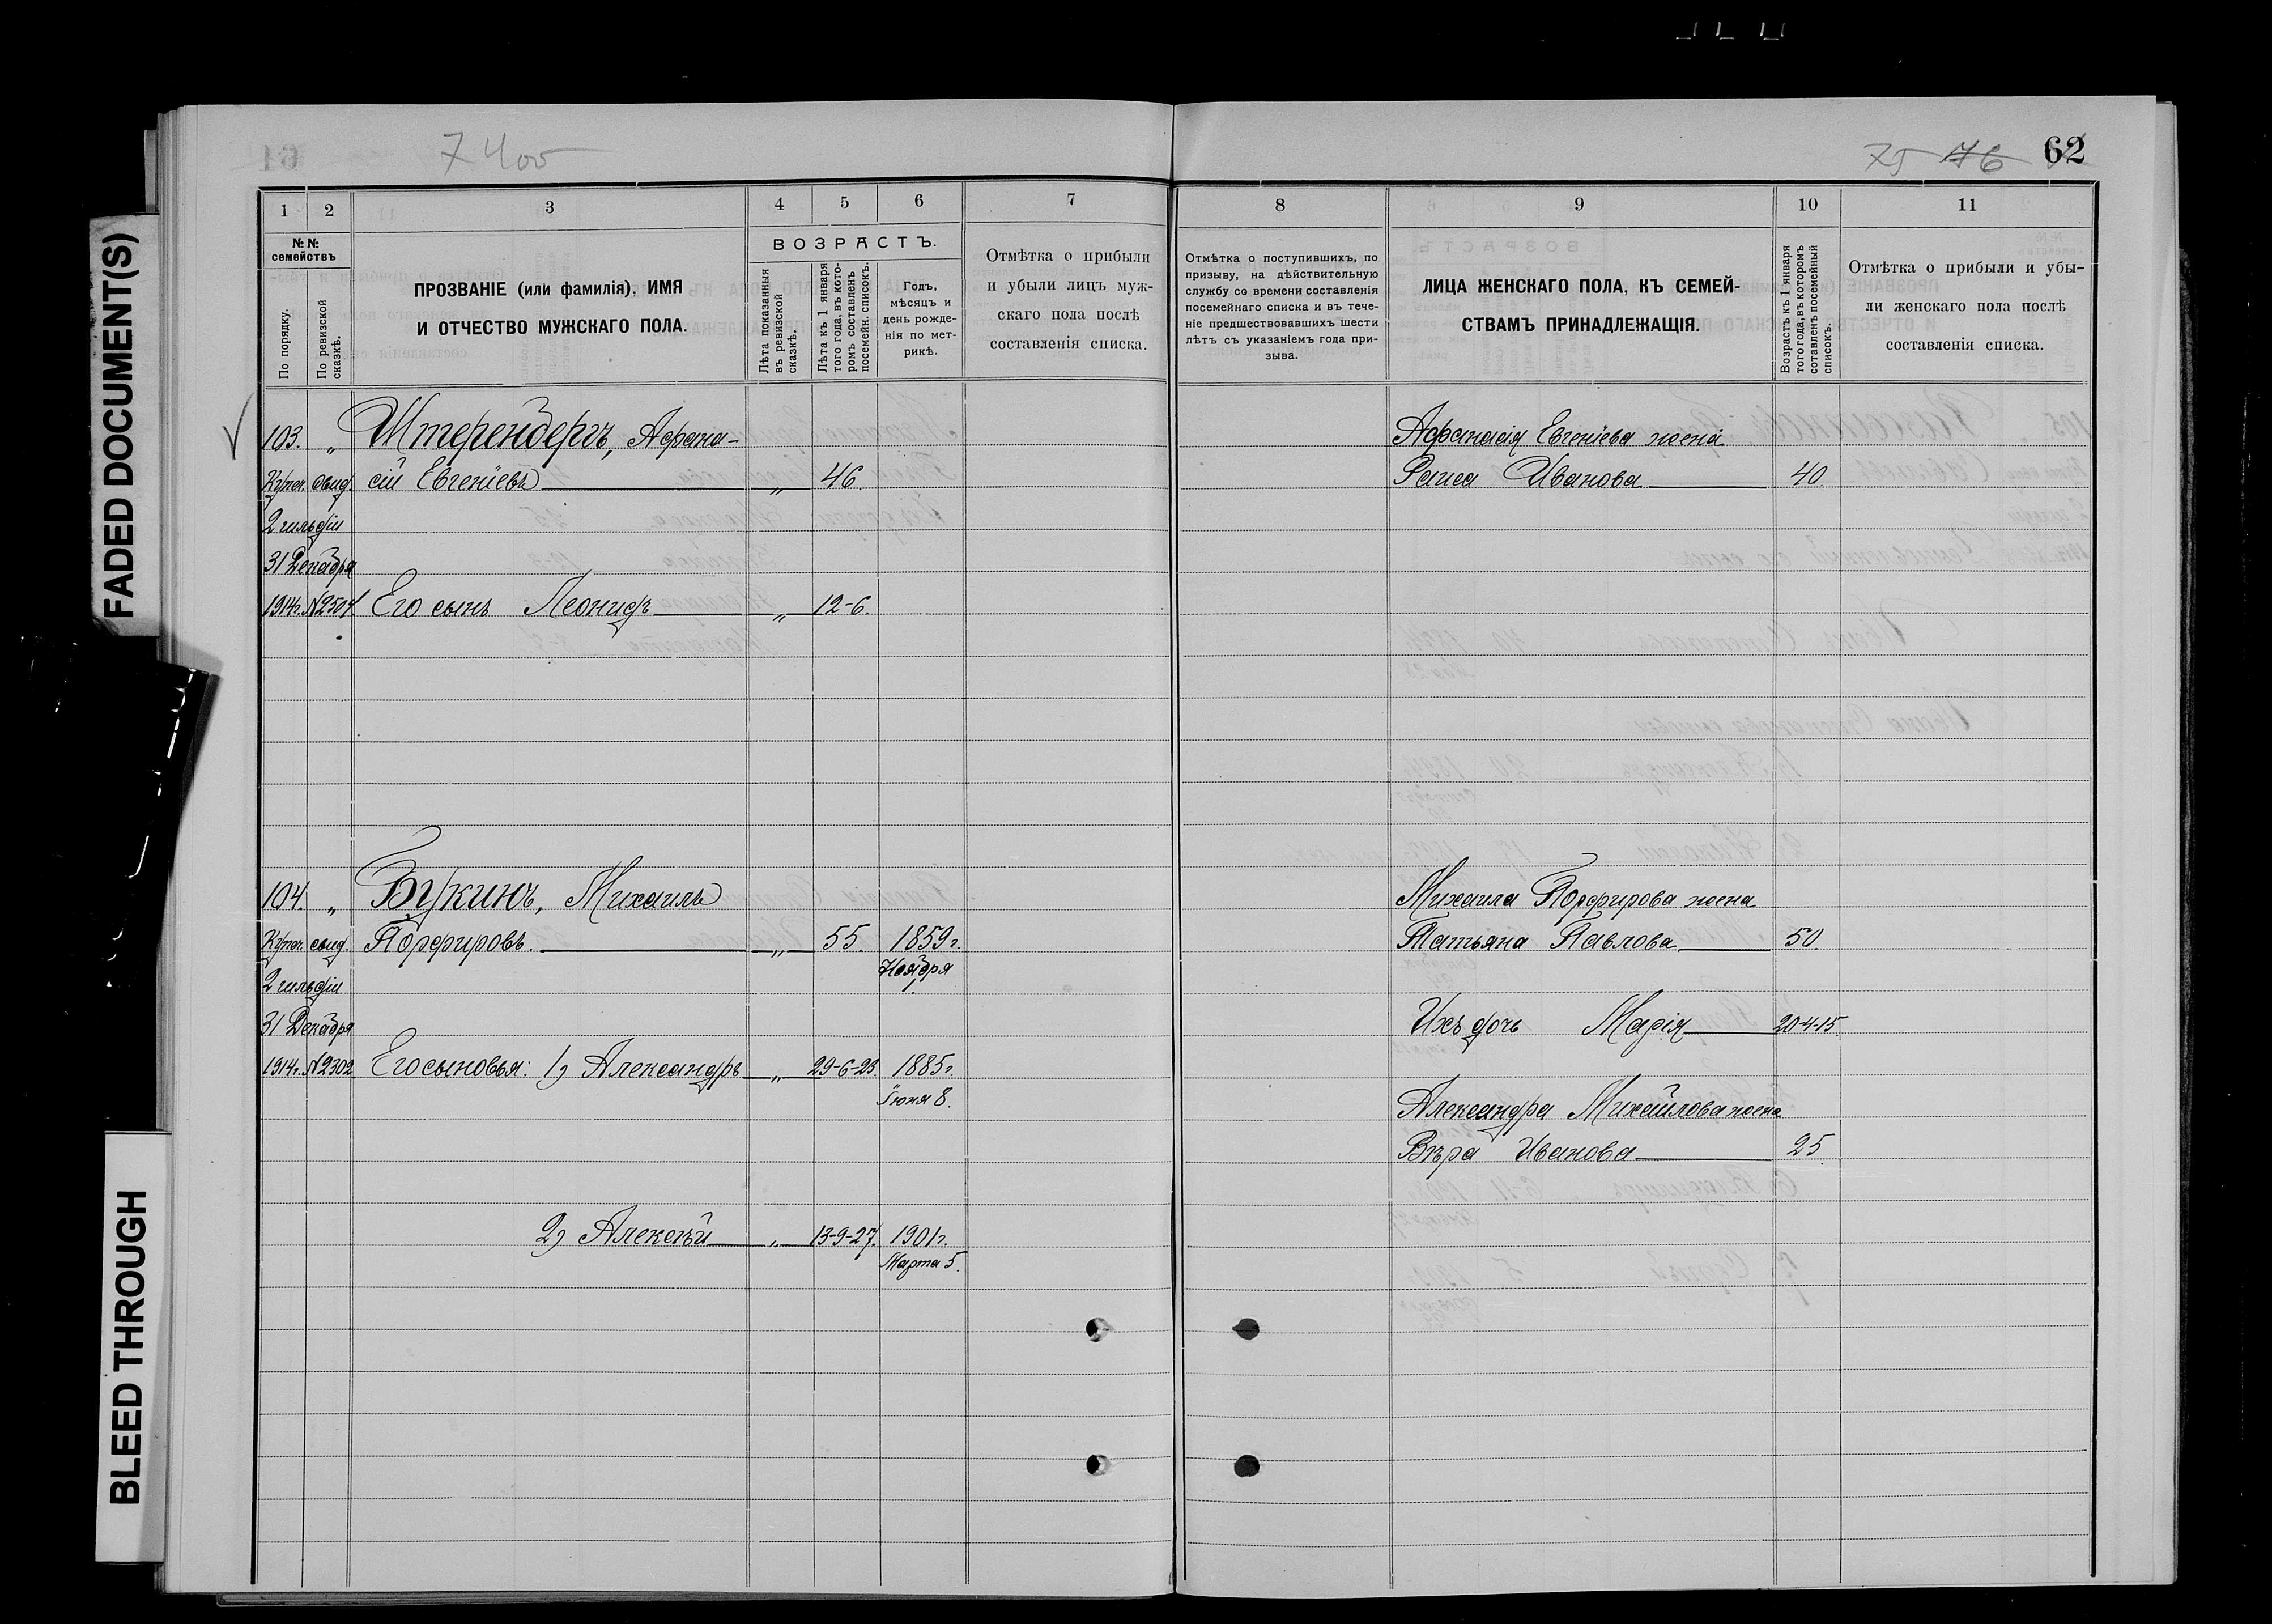 FADED DOCUMENT(S)
BLEED THROUGH
7400
75 76 62
61
1 2 3 4 5 6 7
№№ семействъ
По порядку.
По ревизской сказкѣ.
ПРОЗВАНІЕ (или фамилія), ИМЯ
И ОТЧЕСТВО МУЖСКАГО ПОЛА.
ВОЗРАСТЪ.
Лѣта показанныя въ ревизской сказкѣ.
Лѣта къ 1 января того года, въ которомъ составленъ посемейн. списокъ.
Годъ,
мѣсяцъ и
день рожде-
нія по мет-
рикѣ.
Отмѣтка о прибыли
и убыли лицъ муж-
скаго пола послѣ
составленія списка.
103. „ Штерендергъ, Афана-
Купеч. свид. сій Евгеніевъ „ 46.
2 гильдіи
31 Декабря
1914г. №2504 Его сынъ Леонидъ „ 12-6.
104. „ Букинъ, Михаилъ
Купеч. свид. Порфировъ. „ 55. 1859г.
Ноября
2 гильдіи
31 Декабря
1914г. №2302 Его сыновья: 1) Александръ „ 29-6-23. 1885г.
Іюня 8.
2) Алексѣй „ 13-9-27. 1901г.
Марта 5.
8 9 10 11
Отмѣтка о поступившихъ, по
призыву, на дѣйствительную
службу со времени составленія
посемейнаго списка и въ тече-
ніе предшествовавшихъ шести
лѣтъ съ указаніемъ года при-
зыва.
ЛИЦА ЖЕНСКАГО ПОЛА, КЪ СЕМЕЙ-
СТВАМЪ ПРИНАДЛЕЖАЩІЯ.
Возрастъ къ 1 января того года, въ которомъ составленъ посемейный списокъ.
Отмѣтка о прибыли и убы-
ли женскаго пола послѣ
составленія списка.
Афанасія Евгеніева жена
Раиса Иванова 40.
Михаила Порфирова жена
Татьяна Павлова 50.
Ихъ дочь Марія 20-4-15.
Александра Михайлова жена
Вѣра Иванова 25.